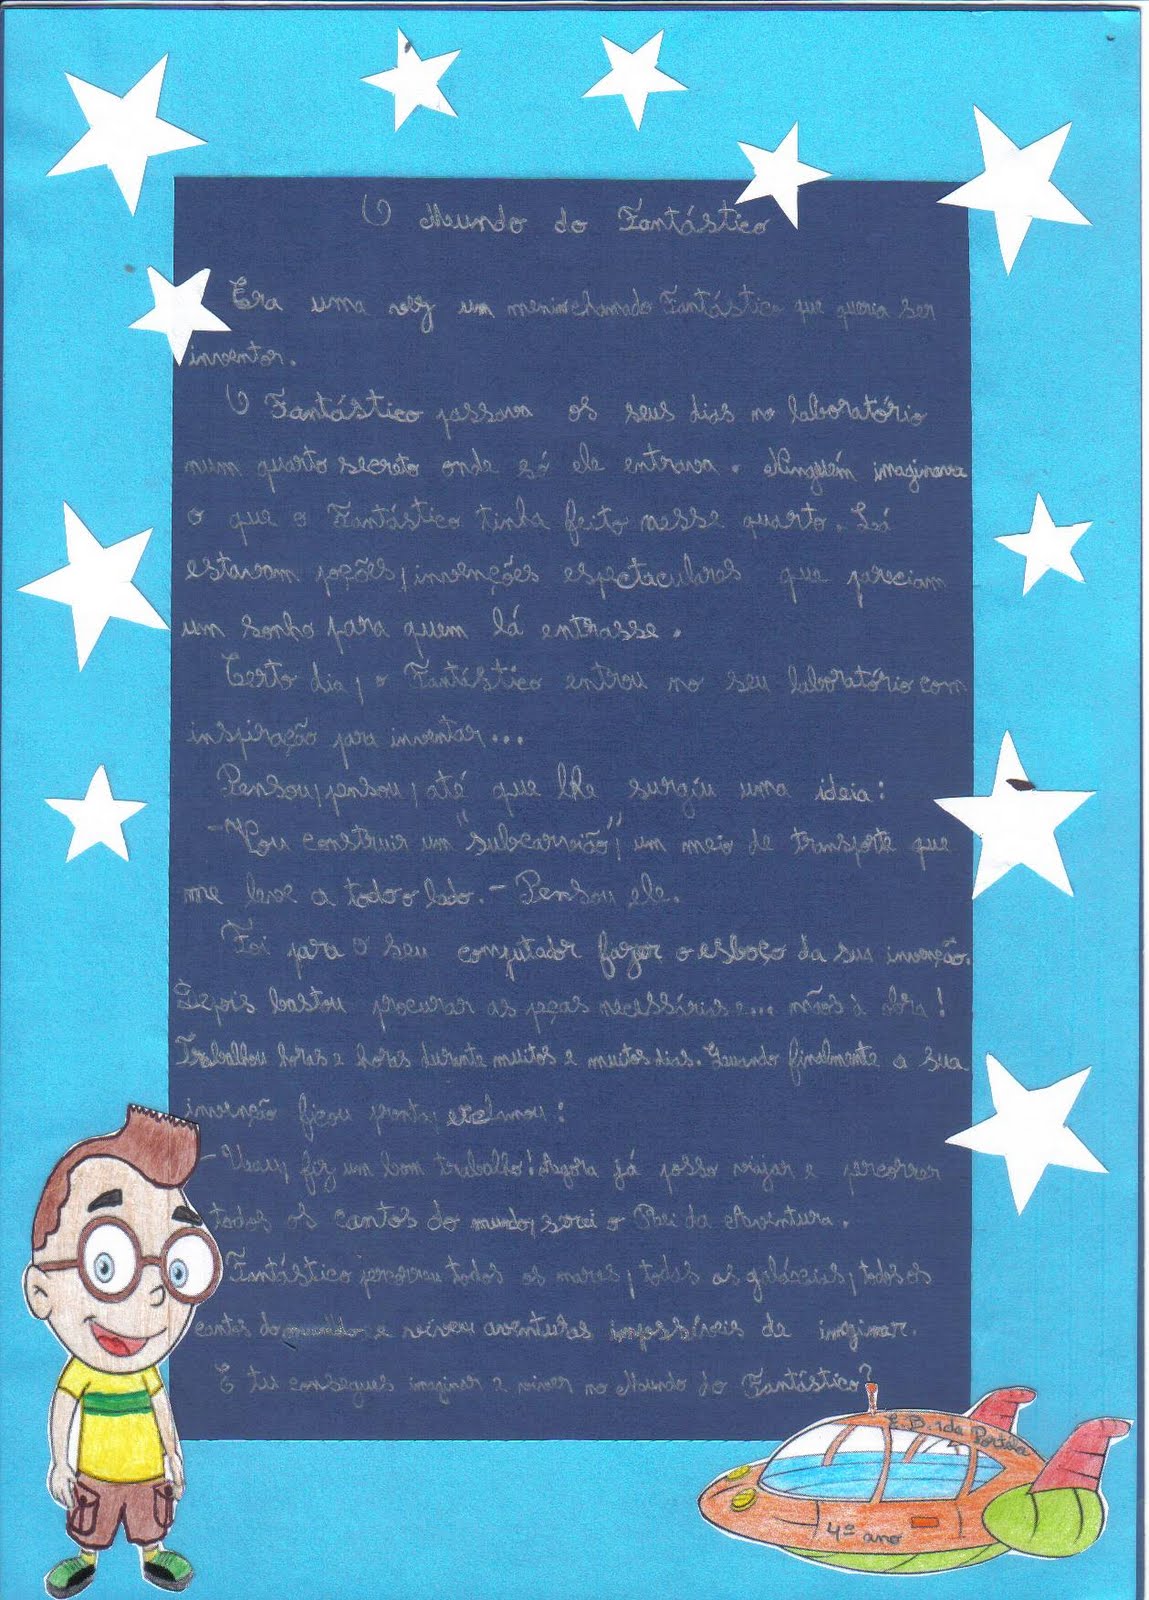 O Mundo do Fantástico
Era uma vez um menino chamado Fantástico que queria ser
inventor.
O Fantástico passava os seus dias no laboratório
num quarto secreto onde só ele entrava. Ninguém imaginava
o que o Fantástico tinha feito nesse quarto. Lá
estavam poções, invenções espectaculares que pareciam
um sonho para quem lá entrasse.
Certo dia, o Fantástico entrou no seu laboratório com
inspiração para inventar...
Pensou, pensou, até que lhe surgiu uma ideia:
-Vou construir um "subcarreião", um meio de transporte que
me leve a todo o lado.- Pensou ele.
Foi para o seu computador fazer o esboço da sua invenção.
Depois bastou procurar as peças necessárias e... mãos à obra!
Trabalhou horas e horas durante muitos e muitos dias. Quando finalmente a sua
invenção ficou pronta, exclamou:
- Uau, fiz um bom trabalho! Agora já posso viajar e percorrer
todos os cantos do mundo, serei o Rei da Aventura.
Fantástico percorreu todos os mares, todas as galáxias, todos os
cantos do e viveu aventuras impossíveis de imginar.
E tu consegues imaginar e viver no Mundo do Fantástico?
E.B. 1 da Portela
4º ano